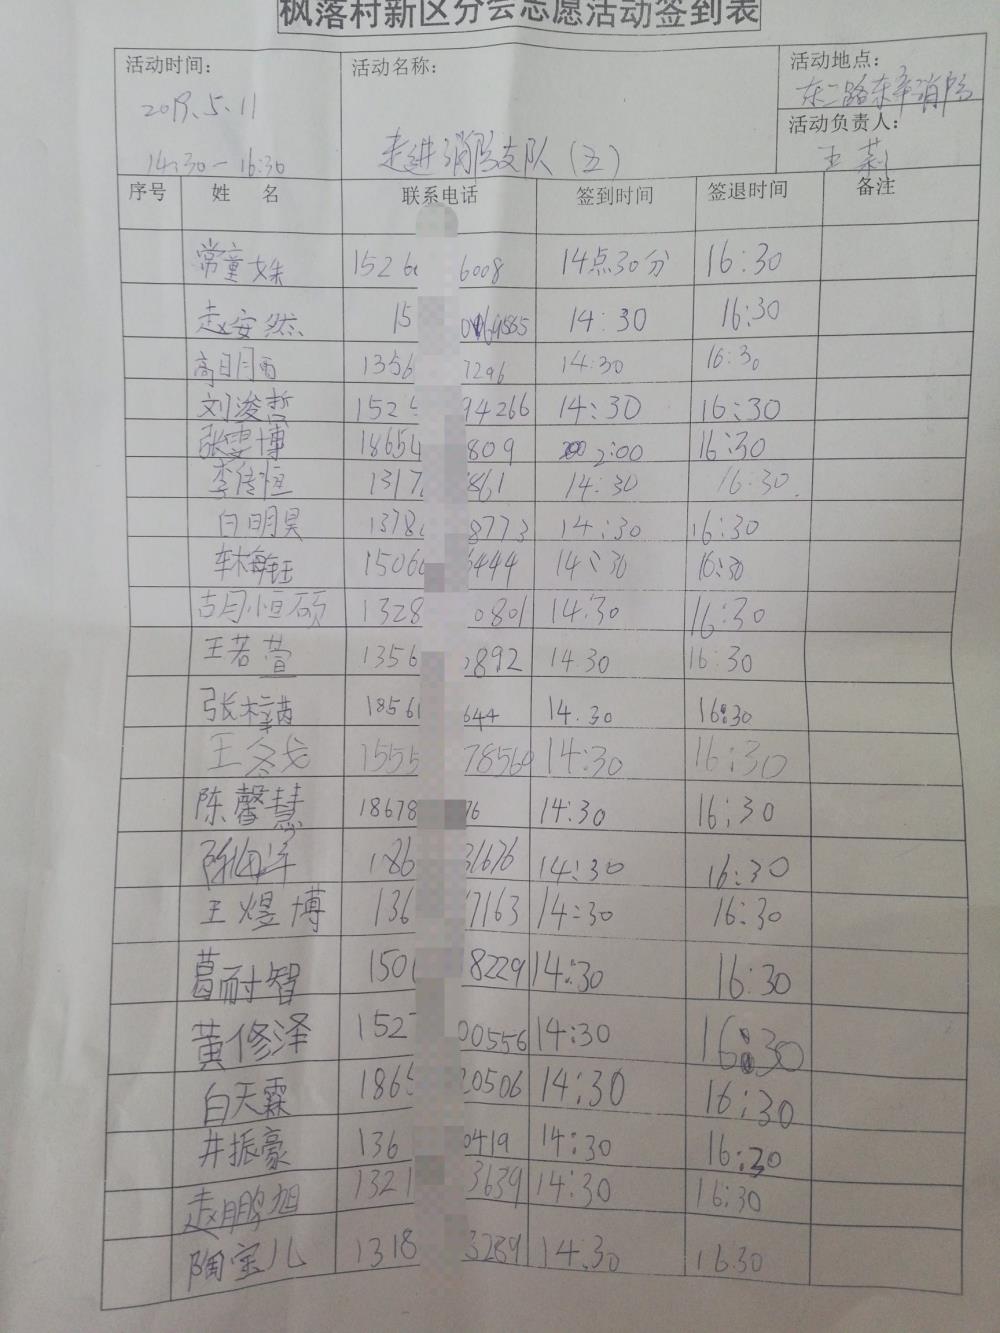 枫落村新区分会志愿活动签到表
活动时间： 活动名称： 活动地点：
2019.5.11 东二路东 消防
活动负责人：
14:30-16:30 走进消防支队（五） 王莉
序号 姓 名 联系电话 签到时间 签退时间 备注
常童姝 152 6008 14点30分 16:30
赵安然 15 14:30 16:30
高明雨 1356 7296 14:30 16:30
刘浚哲 152 94266 14:30 16:30
张雯博 1865 809 2:00 16:30
李传恒 1317 861 14:30 16:30
白明昊 1378 8773 14:30 16:30
1506 444 14:30 16:30
胡恒硕 1328 0801 14:30 16:30
王若萱 1356 892 14.30 16:30
张梓苒 1856 644 14.30 16:30
王冬戈 1555 78560 14:30 16:30
陈馨慧 18678 76 14:30 16:30
186 31676 14:30 16:30
王煜博 136 7163 14:30 16:30
葛耐智 150 8229 14:30 16:30
黄修泽 152 00556 14:30 16:30
白天霖 186 20506 14:30 16:30
井振豪 136 0419 14:30 16:30
赵鹏旭 1321 3639 14:30 16:30
陶宝儿 1318 3289 14:30 16:30